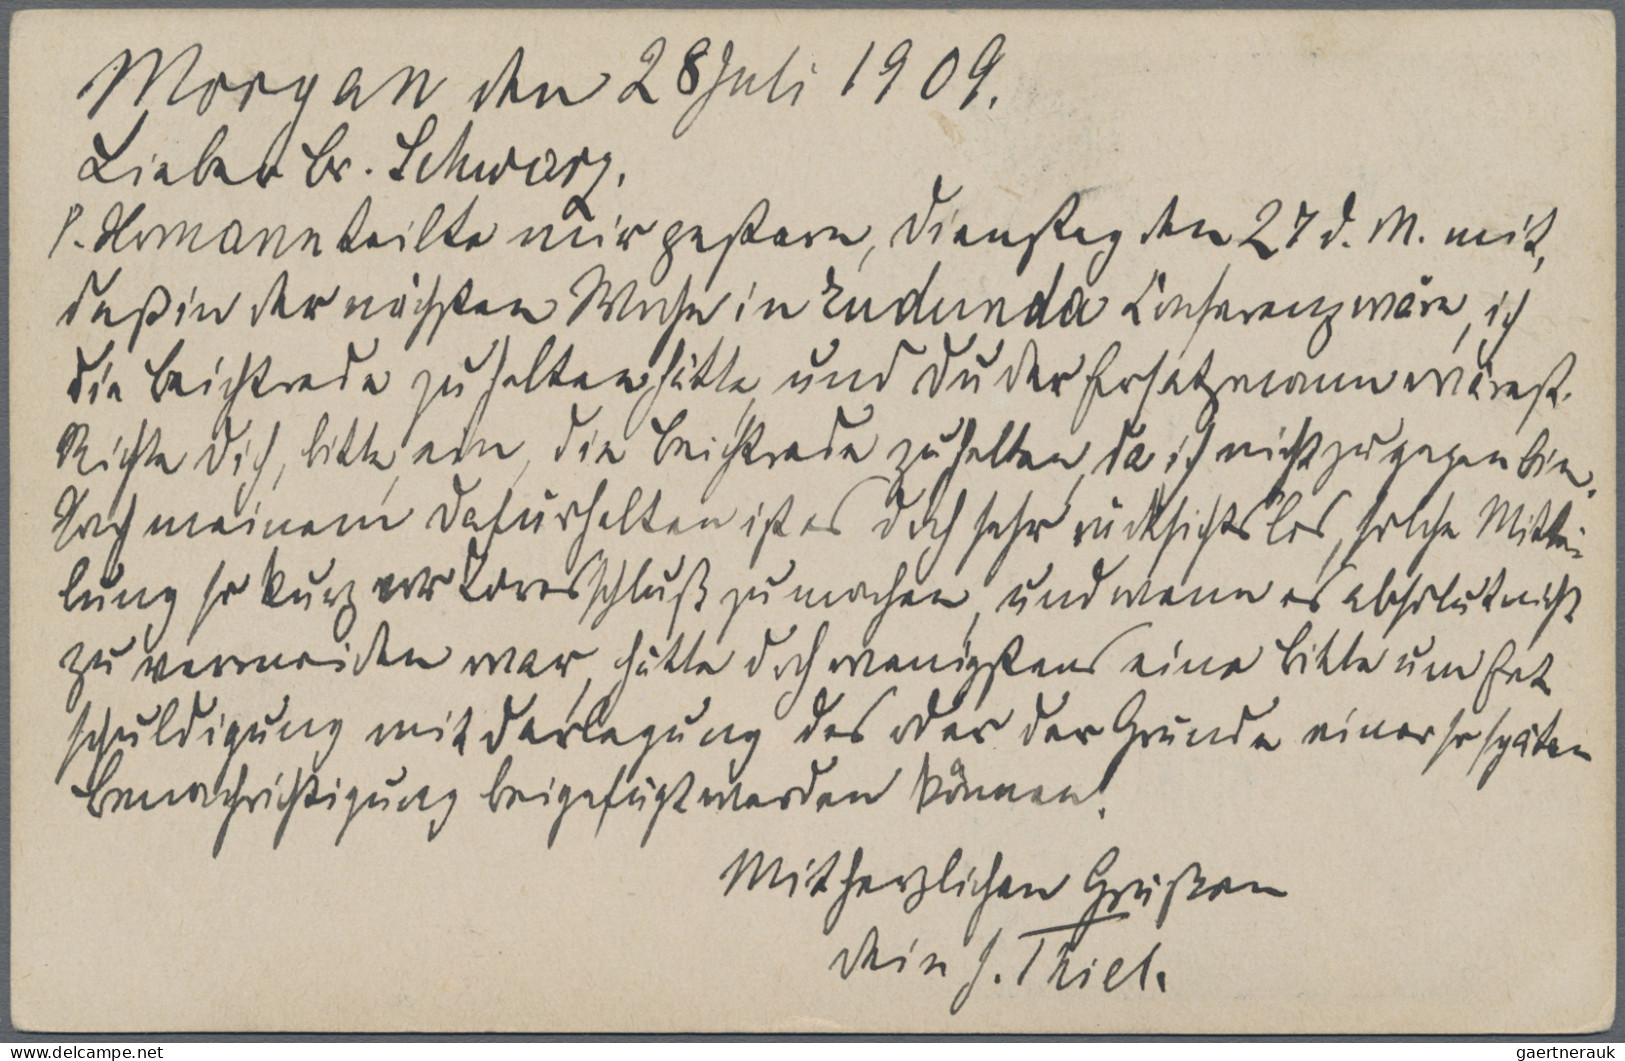 Morgan den 28 Juli 1909.
Lieber Br. Schwarz.
P. Homann teilte mir gestern, Dienstag den 27 d. M. mit,
daß in der nächsten Woche in Eudunda Conferenz wäre, ich
die Beichtrede zu halten hätte und Du der Ersatzmann wärest.
Richte Dich, bitte, ein, die Beichtrede zu halten, da ich nicht zugegen bin.
Nach meinem Dafürhalten ist es doch sehr rücksichtslos, solche Mittei-
lung so kurz vor Toresschluß zu machen, und wenn es absolut nicht
zu vermeiden war, hätte doch wenigstens eine Bitte um Ent
schuldigung mit Darlegung des oder der Gründe einer so späten
Benachrichtigung beigefügt werden können.
Mit herzlichen Grüßen
Dein J. Thiel.
www.delcampe.net
gaertnerauk